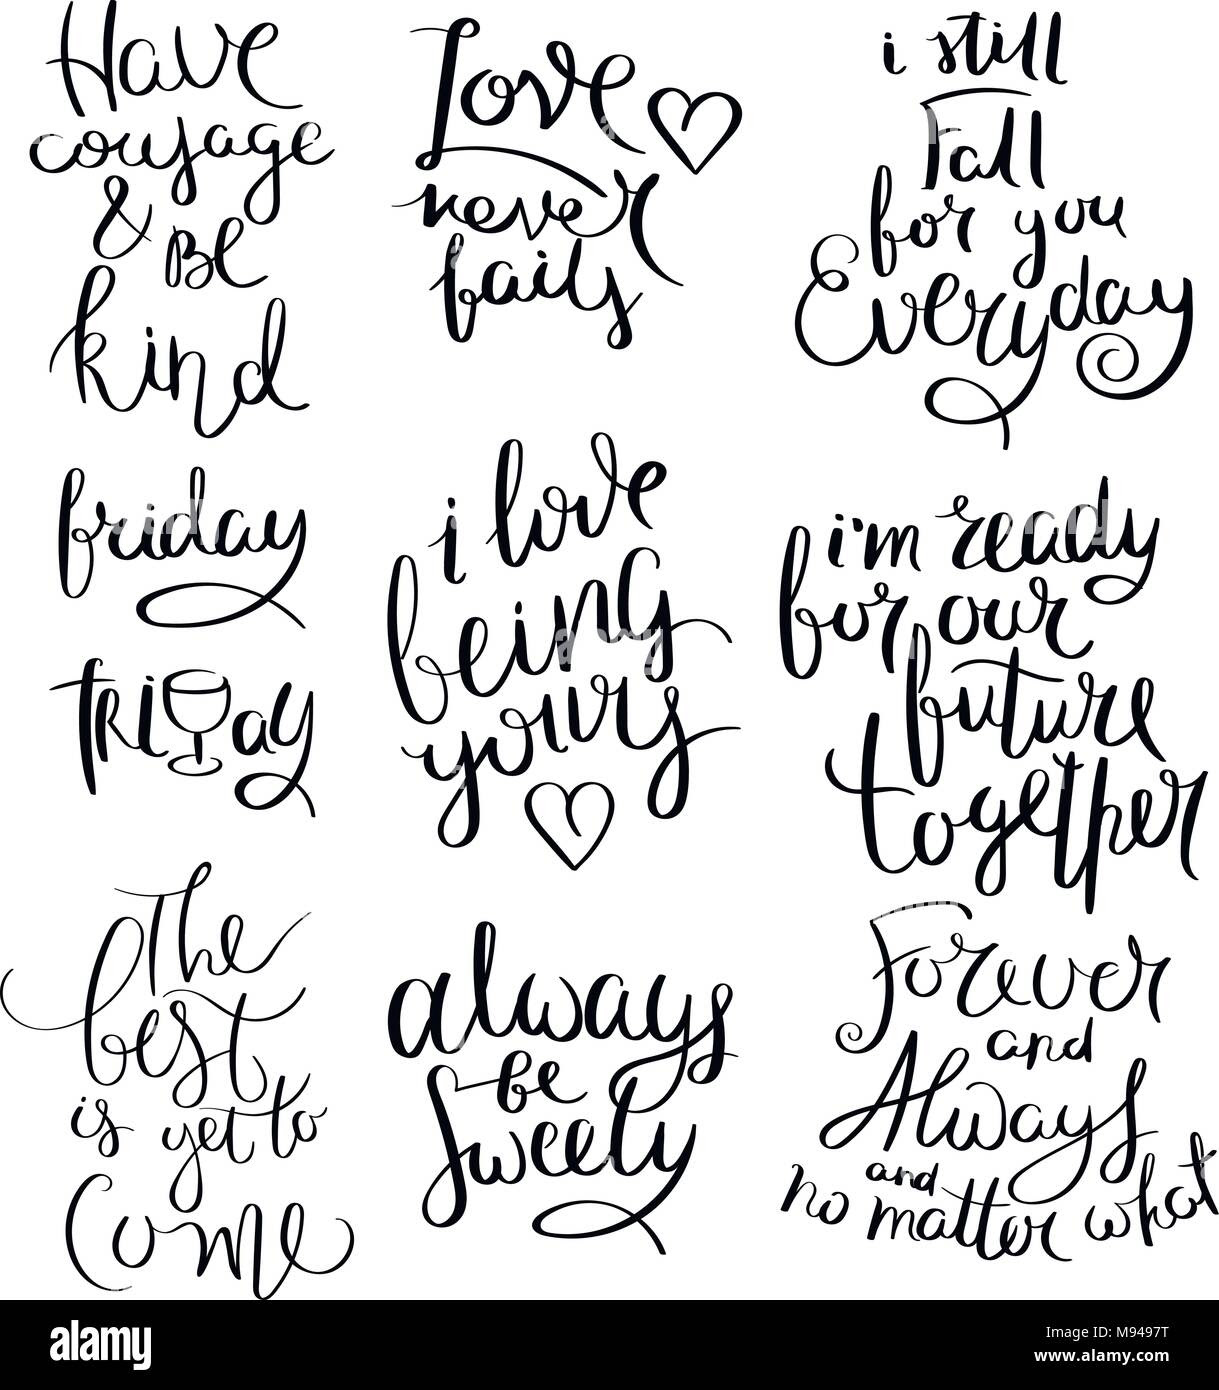 Have
courage
& Be
kind
Love
never
fails
i still
Fall
for you
Everyday
friday
friday
i love
being
yours
i'm ready
for our
future
together
The
best
is yet to
Come
always
be
Sweety
Forever
and
Always
and
no matter what
alamy
alamy
Image ID: M9497T
www.alamy.com